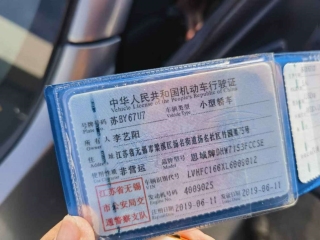 中华人民共和国机动车行驶证
Vehicle License of the People's Republic of China
号牌号码 苏BY67U7 车辆类型 小型轿车
所有人 李艺阳
住址 江苏省无锡市
使用性质 非营运 品牌型号 思域牌DHW7153FCCSE
江苏省无锡 车辆识别代号
市公安局交 发动机号码 4009025
通警察支队 注册日期 2019-06-11 发证日期 2019-06-11